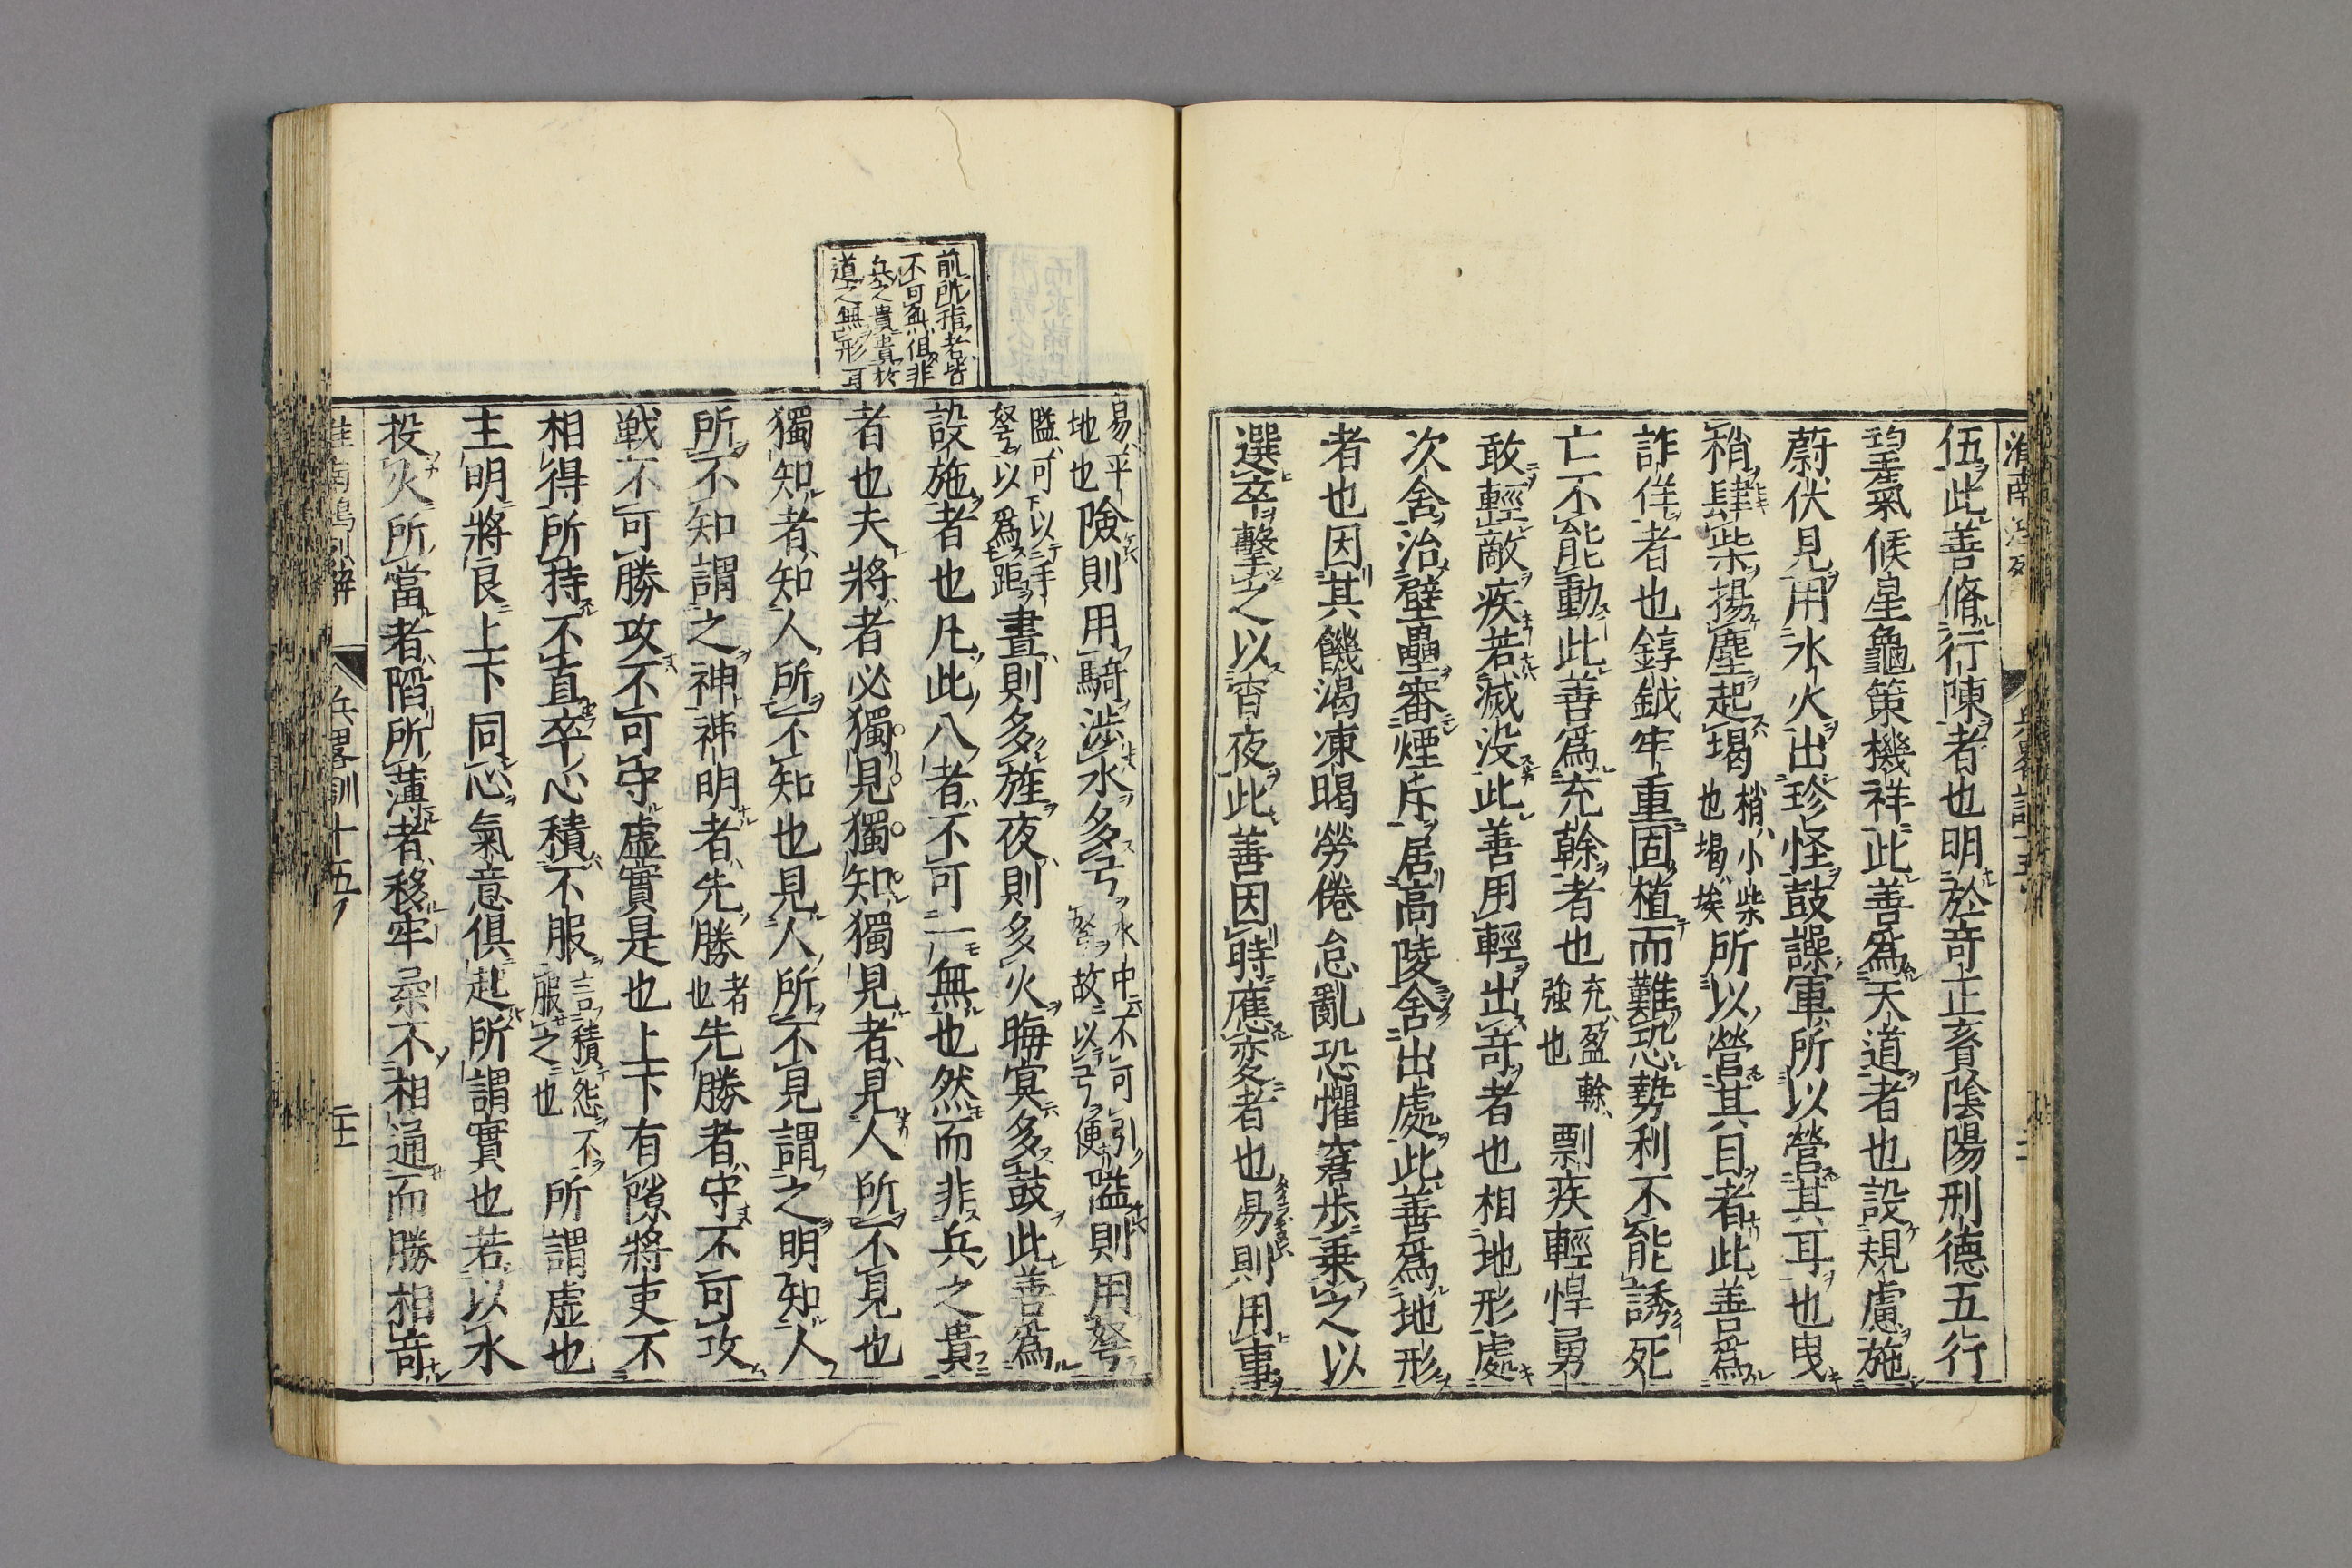 伍此善脩行陳者也明於奇正賌陰陽刑德五行
望氣候星龜策機祥此善爲天道者也設規慮施
蔚伏見用水火出珍怪鼓譟軍所以營其耳也曳
稍肆柴揚塵起堨梢小柴也堨埃所以營其目者此善爲
詐佯者也錞鉞牢重固植而難恐勢利不能誘死
亡不能動此善爲充榦者也充盈榦強也剽疾輕悍勇
敢輕敵疾若滅没此善用輕出奇者也相地形處
次舍治壁壘審煙斥居高陵舍出處此善爲地形
者也因其饑渴凍暍勞倦怠亂恐懼窘步乗之以
選卒擊之以宵夜此善因時應変者也易則用車
易平地也險則用騎渉水多弓水中不可引弩故以弓便隘則用弩
隘可以手弩以爲距晝則多旌夜則多火晦冥多鼓此善爲
設施者也凡此八者不可一無也然而非兵之貴
者也夫將者必獨見獨知獨見者見人所不見也
獨知者知人所不知也見人所不見謂之明知人
所不知謂之神神明者先勝者也先勝者守不可攻
戦不可勝攻不可守虚實是也上下有隙將吏不
相得所持不直卒心積不服言積怨不服之也所謂虚也
主明將良上下同心氣意俱起所謂實也若以水
投火所當者陷所薄者移牢柔不相通而勝相奇
前所指者皆
不可無但非
兵之貴貴於
道之無形耳
兵畧訓十五